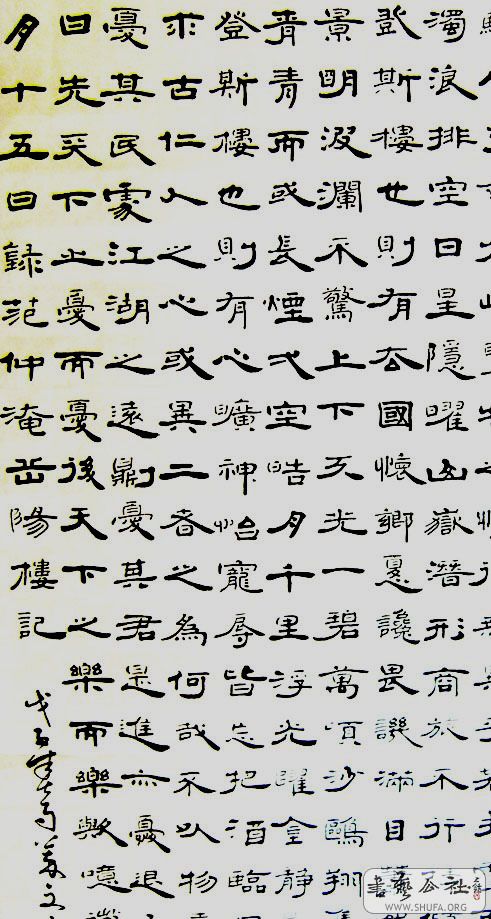 濁浪排空日星隱曜山嶽潛形商旅不行
登斯樓也則有去國懷鄉憂讒畏譏滿目
景明波瀾不驚上下天光一碧萬頃沙鷗翔
青青而或長煙弌空晧月千里浮光曜金靜
登斯樓也則有心曠神怡寵辱皆忘把酒臨
求古仁人之心或異二者之為何哉不以物
憂其民處江湖之遠則憂其君是進亦憂退
曰先天下之憂而憂後天下之樂而樂歟噫
月十五日錄范仲淹岳陽樓記
戊子
書藝公社
WWW.SHUFA.ORG